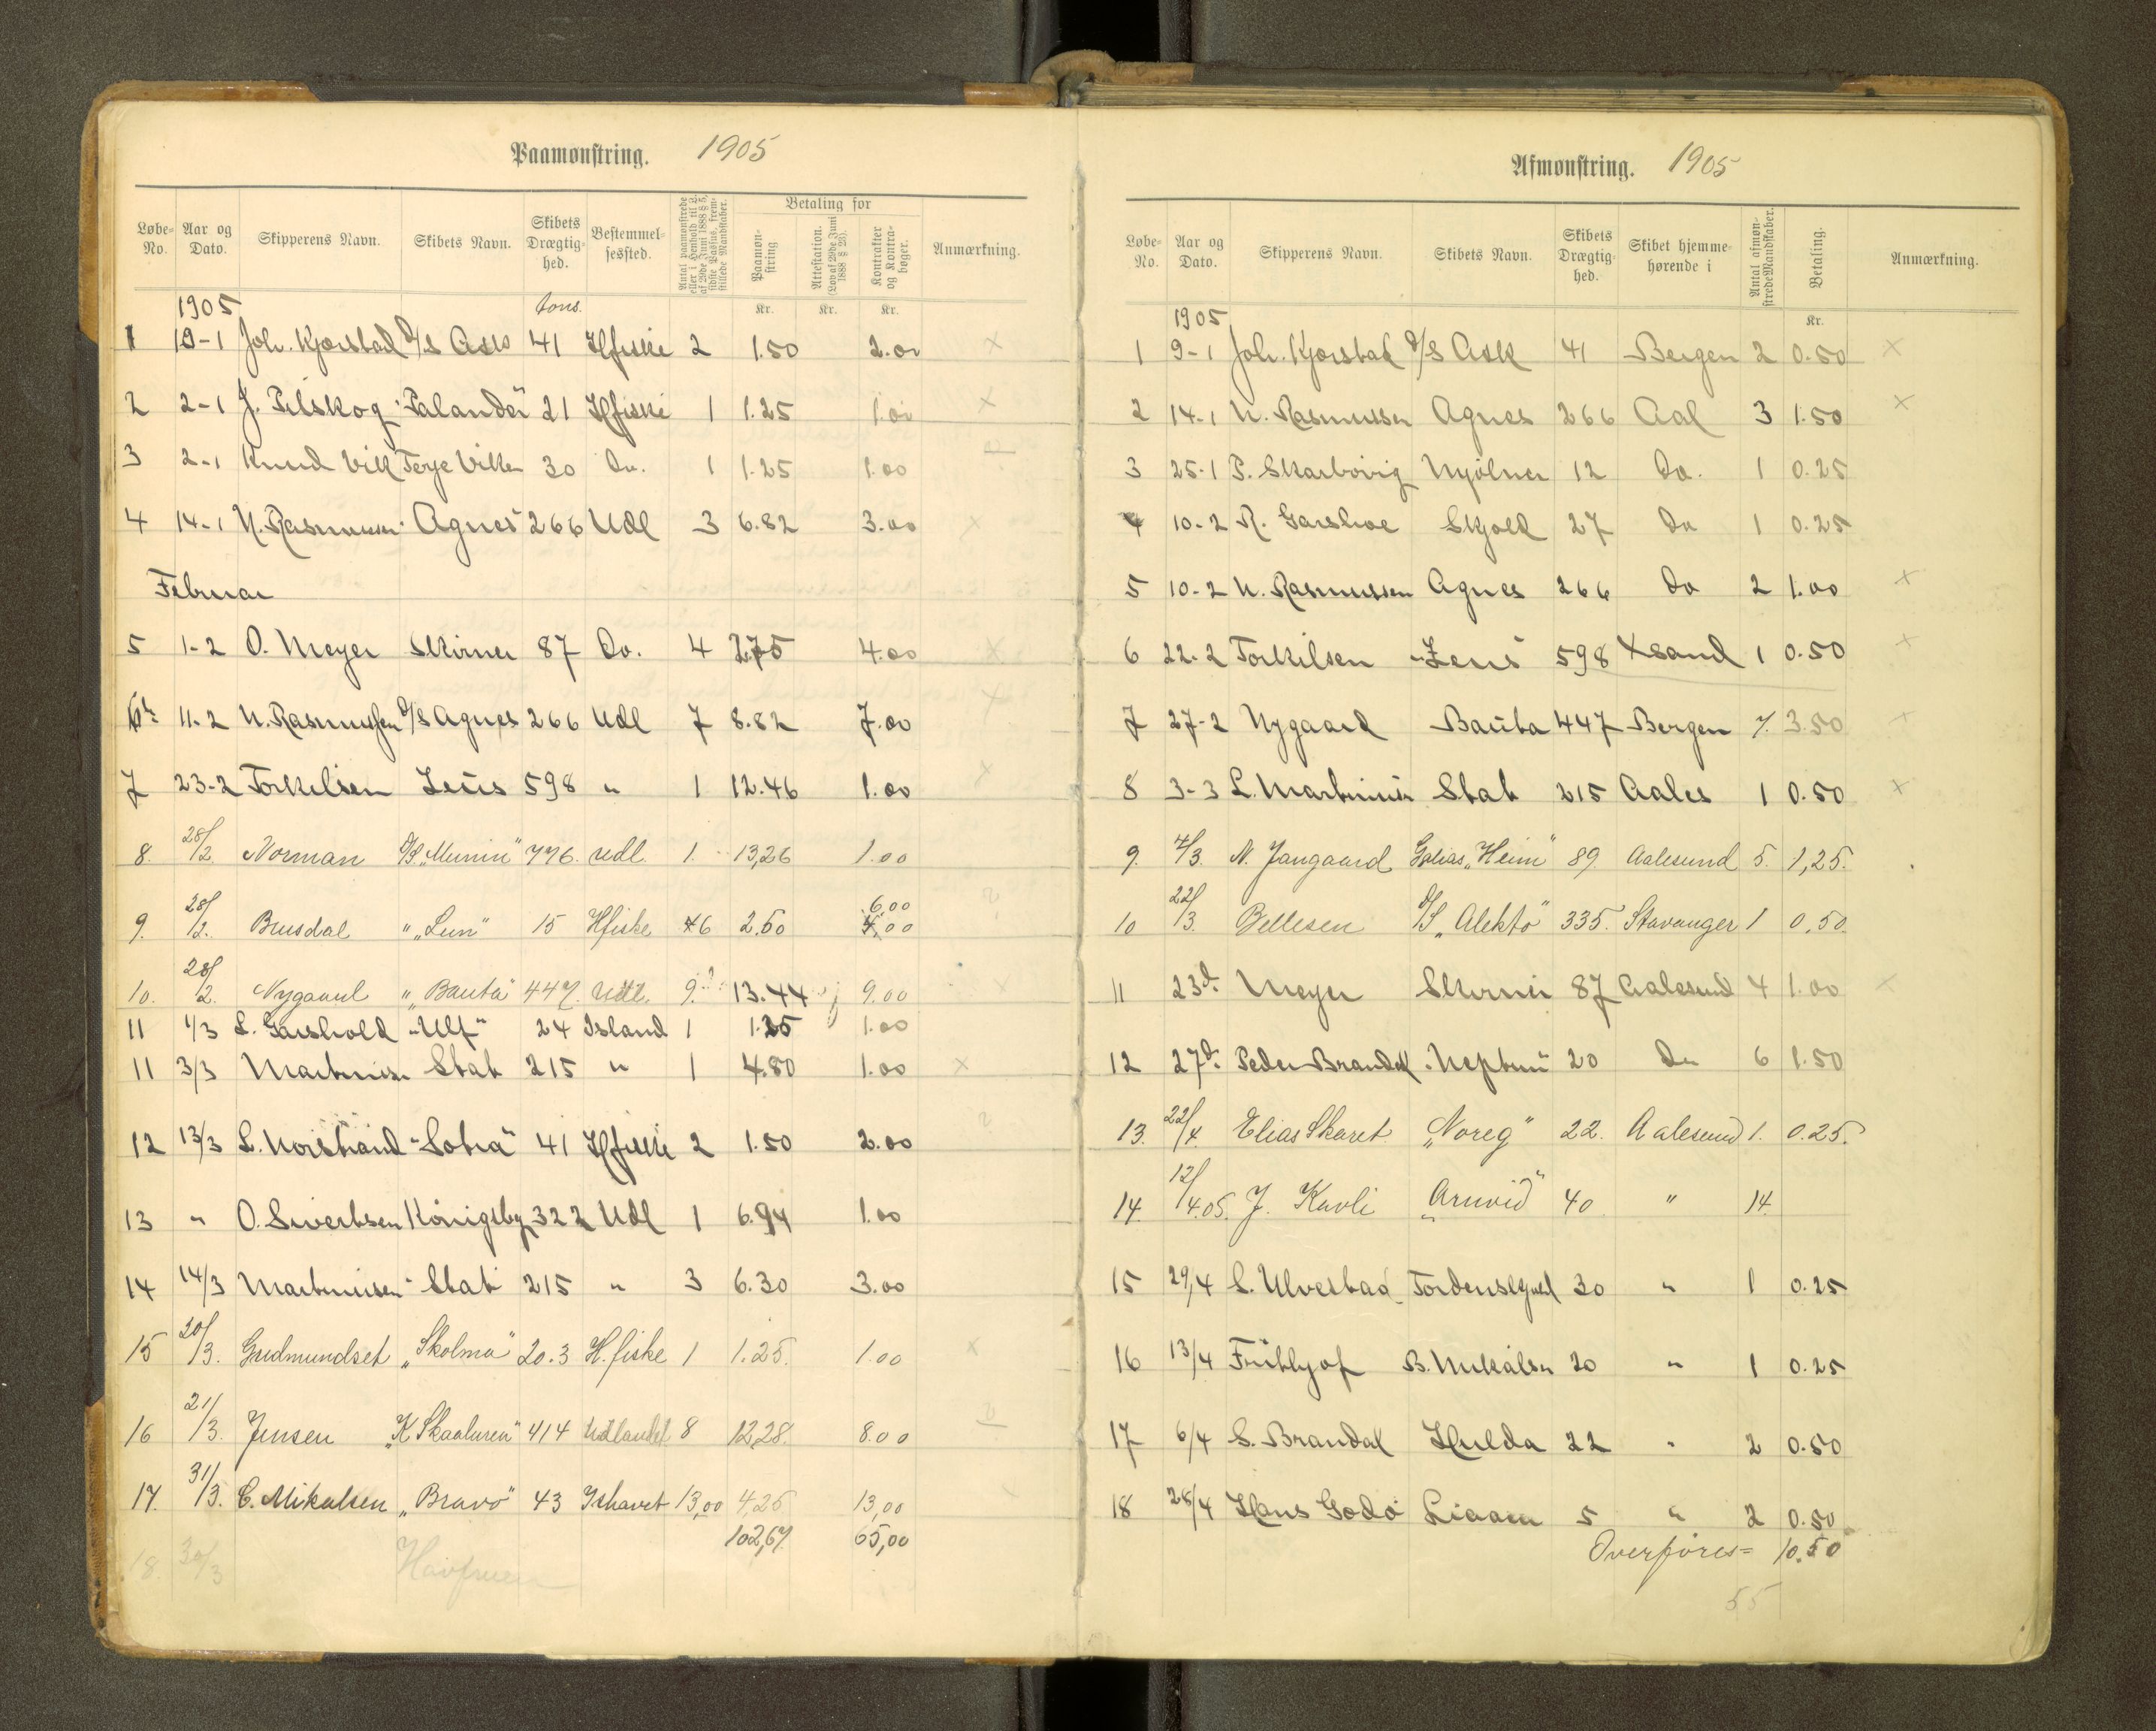 Paamønstring. 1905
Løbe-No. Aar og Dato. Skipperens Navn. Skibets Navn. Skibets Drægtighed. Bestemmelsessted. Antal paamønstrede eller i Henhold til L. af 29de Juni 1888 § 5, sidste Passus, fremstillede Mandskaber. Betaling for Paamønstring Attestation. (Lov af 29de Juni 1888 § 23). Kontrakter og Kontrabøger. Anmærkning.
1905 tons. Kr. Kr. Kr.
1 19-1 Joh. Kjørstad D/S Ask 41 Hfiske 2 1.50 2.00 ×
2 2-1 J. Pilskog "Palander" 21 Hfiske 1 1.25 1.00 ×
3 2-1 Knud Vik Terje Viken 30 Do. 1 1.25 1.00
4 14-1 N. Rasmussen "Agnes" 266 Udl 3 6.82 3.00 ×
Februar
5 1-2 O. Meyer Skirner 87 Do. 4 2.75 4.00 ×
6 11-2 N. Rasmussen D/S Agnes 266 Udl 7 8.82 7.00 ×
7 23-2 Torkilsen Zeus 598 " 1 12.46 1.00 ×
8. 28/2. Norman D/S "Munin" 776. Udl. 1. 13,26 1.00
9. 28/2. Brusdal " "Leun" 15 Hfiske 6 2.50 6.00 4,00
10. 28/2. Nygaard " "Bauta" 447. Udl. 9. 13.44 9.00 ×
11 1/3 L. Garshold "Ulf" 24 Island 1 1.25 1.00
11 3/3 Martinisen Stat 215 " 1 4.80 1.00 ×
12 13/3 L. Norstrand "Sotra" 41 Hfiske 2 1.50 2.00
13 " O. Sivertsen Königsbg. 322 Udl 1 6.94 1.00
14 14/3 Martinusen "Stat" 215 " 3 6.30 3.00
15 20/3. Gudmundset "Skolma" 20.3 H.fiske 1 1.25. 1.00 ×
16 21/3. Jensen "K Skaaluren" 414 Udlandet 8 12,28. 8.00
17. 31/3. C. Mikalsen "Bravo" 43 Ishavet 13,00 4,25 13,00
102,67. 65,00
18. 30/3 Havfruen
Afmønstring. 1905
Løbe-No. Aar og Dato. Skipperens Navn. Skibets Navn. Skibets Drægtighed. Skibet hjemmehørende i Antal afmønstrede Mandskaber. Betaling. Anmærkning.
1905 Kr.
1 9-1 Joh. Kjørstad D/S Ask 41 Bergen 2 0.50 ×
2 14-1 N. Rasmussen Agnes 266 Aal 3 1.50 ×
3 25-1 P. Skarbøvig Mjølner 12 Do. 1 0.25
4 10-2 R. Garshol Skjold 27 Do 1 0.25
5 10-2 N. Rasmussen Agnes 266 Do 2 1.00 ×
6 22-2 Torkilsen "Zeus" 598 Xsand 1 0.50 ×
7 27-2 Nygaard Bauta 447 Bergen 7. 3.50 ×
8 3-3 L. Martinusen Stat 215 Aales 1 0.50 ×
9. 4/3. N. Jangaard Galias "Heim" 89 Aalesund 5. 1,25.
10 22/3. Bellesen D/S "Alekto" 335. Stavanger 1 0.50.
11 23d. Meyer Skirner 87 Aalesund 4 1.00 ×
12 27d. Peder Brandal "Neptun" 20 Do 6 1.50
13. 22/4. Elias Skaret "Noreg" 22. Aalesund 1. 0.25.
14. 12/4.05. J. Kavli "Arnvid" 40 " 14.
15 29/4 S. Ulvestad Tordenskjold 30 " 1 0.25
16 13/4 Frithjof B. Mikalsen 20 " 1 0.25
17 6/4 S. Brandal Hulda 22 " 2 0.50
18 28/4 Hans Godø Liaaen 5 " 2 0.50
Overføres = 10.50
55